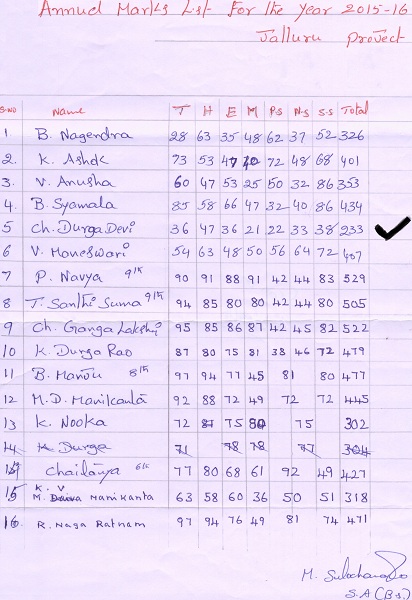 Annual Marks List For the Year 2015-16
Jalluru Project
S.NO Name T H E M P.S N.S S.S Total
1. B. Nagendra 28 63 35 48 62 37 52 326
2. K. Ashok 73 53 47 40 72 48 68 401
3. V. Anusha 60 47 53 25 50 32 86 353
4. B. Syamala 85 58 66 47 32 40 86 434
5 Ch. Durga Devi 36 47 36 21 22 33 38 233
6 V. Maneswari 54 63 48 50 56 64 72 407
7 P. Navya 9th 90 91 88 91 42 44 83 529
8 T. Santhi Suma 9th 94 85 80 80 42 44 80 505
9 Ch. Ganga Lakshmi 95 85 86 87 42 45 82 522
10 K. Durga Rao 87 80 75 81 38 46 72 479
11 B. Manju 8th 97 94 77 45 81 80 477
12 M.D. Manikanta 92 88 72 49 72 72 445
13 K. Nooka 72 81 75 80 75 302
14 K Durga 71 78 78 77 304
14 Chaitanya 6th 77 80 68 61 92 49 427
15 K. V
M. Manikanta 63 58 60 36 50 51 318
16. R. Naga Ratnam 97 94 76 49 81 74 471
M.
S.A (B.S)